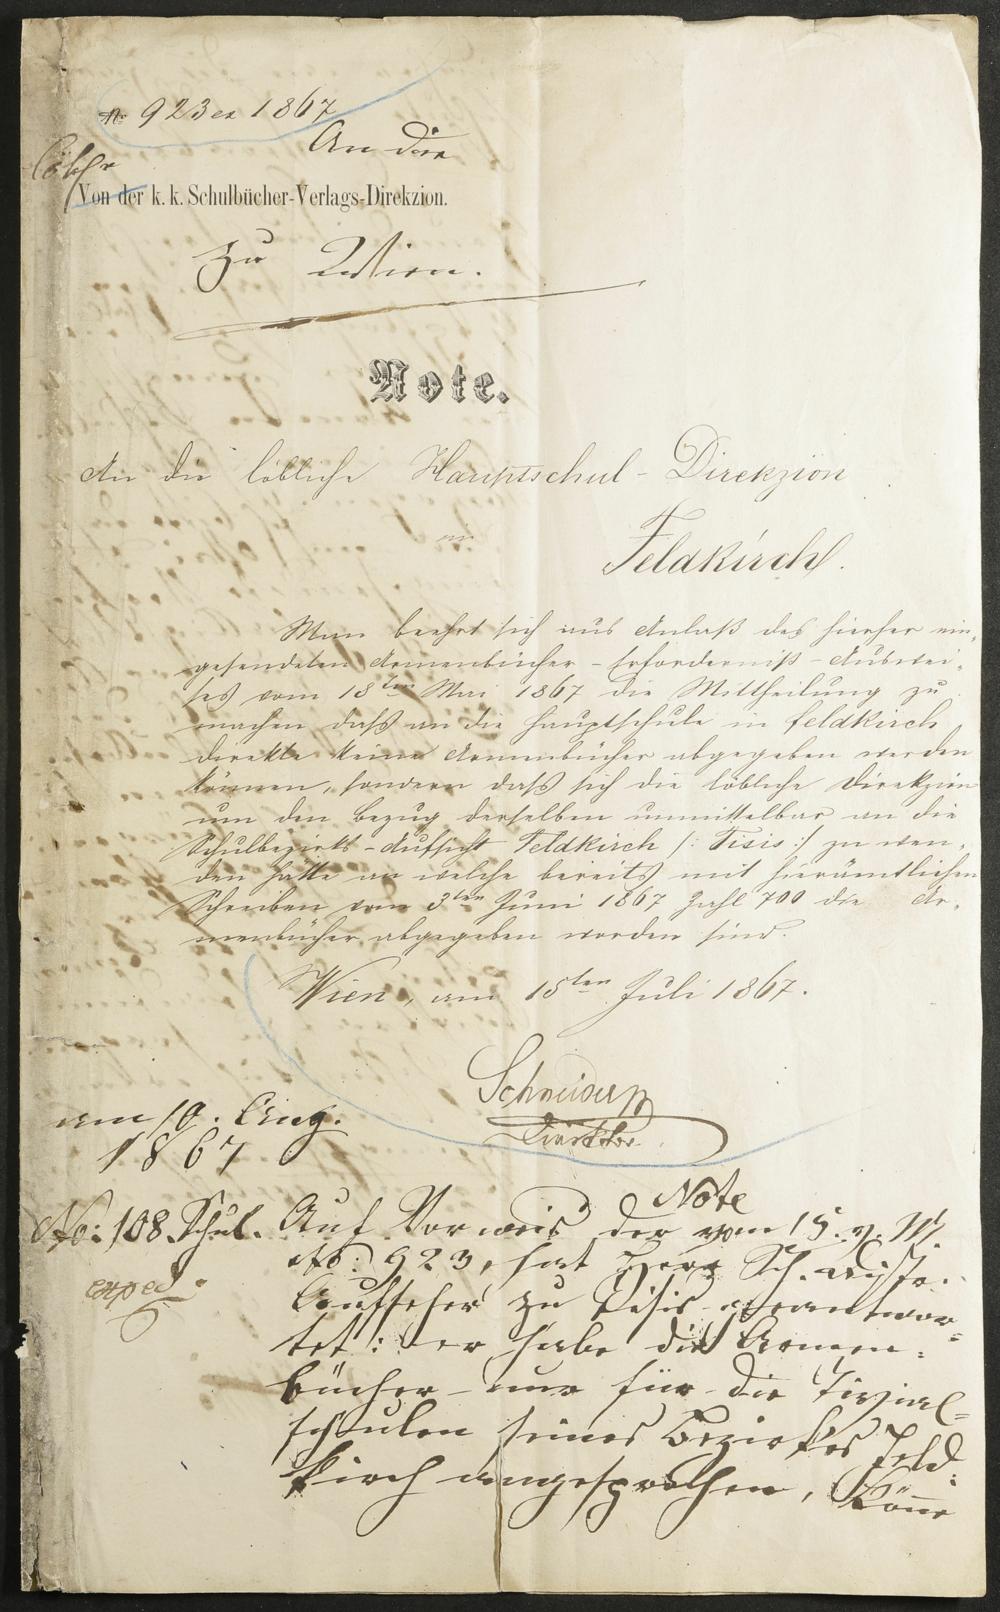 No 923 ex 1867
An die
Löbl.
Von der k. k. Schulbücher-Verlags-Direkzion.
zu Wien.
Note.
An die löbliche Hauptschul-Direkzion
in
Feldkirch.
Man beehrt sich aus Anlaß des hierher ein-
gesendeten Armenbücher-Erforderniß-Auswei-
ses vom 18ten Mai 1867 die Mittheilung zu
machen daß an die Hauptschule in Feldkirch
direkte keine Armenbücher abgegeben werden
können, sondern daß sich die löbliche Direkzion
um den Bezug derselben unmittelbar an die
Schulbezirks-Aufsicht Feldkirch /: Tisis :/ zu wen-
den hätte an welche bereits mit hierämtlichen
Schreiben vom 3ten Juni 1867 Zahl 700 die Ar-
menbücher abgegeben worden sind.
Wien, am 15ten Juli 1867.
Schneider
Direktor
am 10. Aug.
1867
Note
No: 108 Schul. Auf Vorweis der vom 15. v. M.
No: 923, hat Herr Sch. Distr.
exped.
Aufseher zu Tisis geantwor-
tet: er habe die Armen-
bücher nur für die Trivial-
schulen seines Bezirkes Feld-
kirch angesprochen, könne